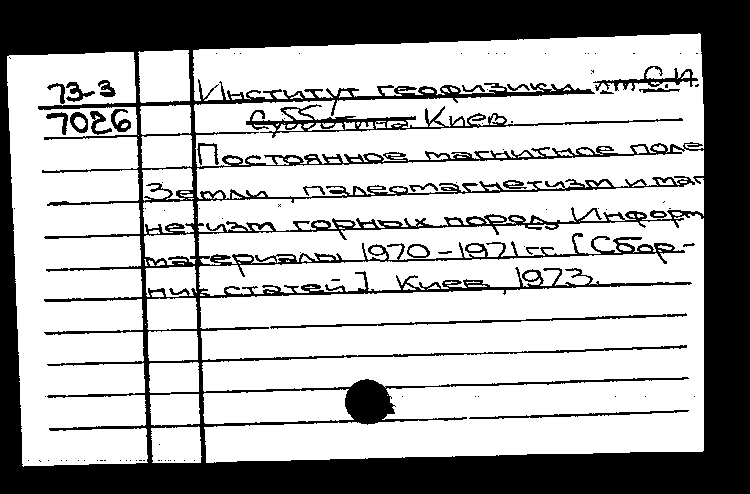 73-3
7026
Институт геофизики им. С.И.
Субботина. Киев.
Постоянное магнитное поле
Земли, палеомагнетизм и маг
нетизм горных пород. Информ
материалы 1970-1971 гг. [Сбор-
ник статей]. Киев, 1973.